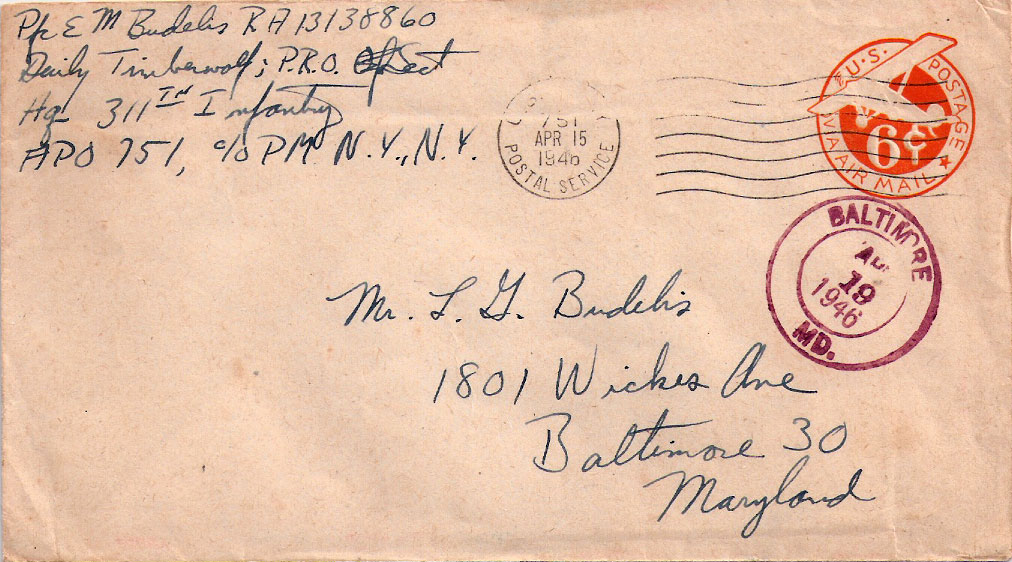 Pfc E M Budelis RA 13138860
Daily Timberwolf; P.R.O. Sect
Hq 311th Infantry
APO 751, c/o PM. N.Y., N.Y.
751
APR 15
1946
POSTAL SERVICE
U.S. POSTAGE
6¢
VIA AIR MAIL
BALTIMORE
APR
19
1946
MD.
Mr. L. G. Budelis
1801 Wickes Ave
Baltimore 30
Maryland